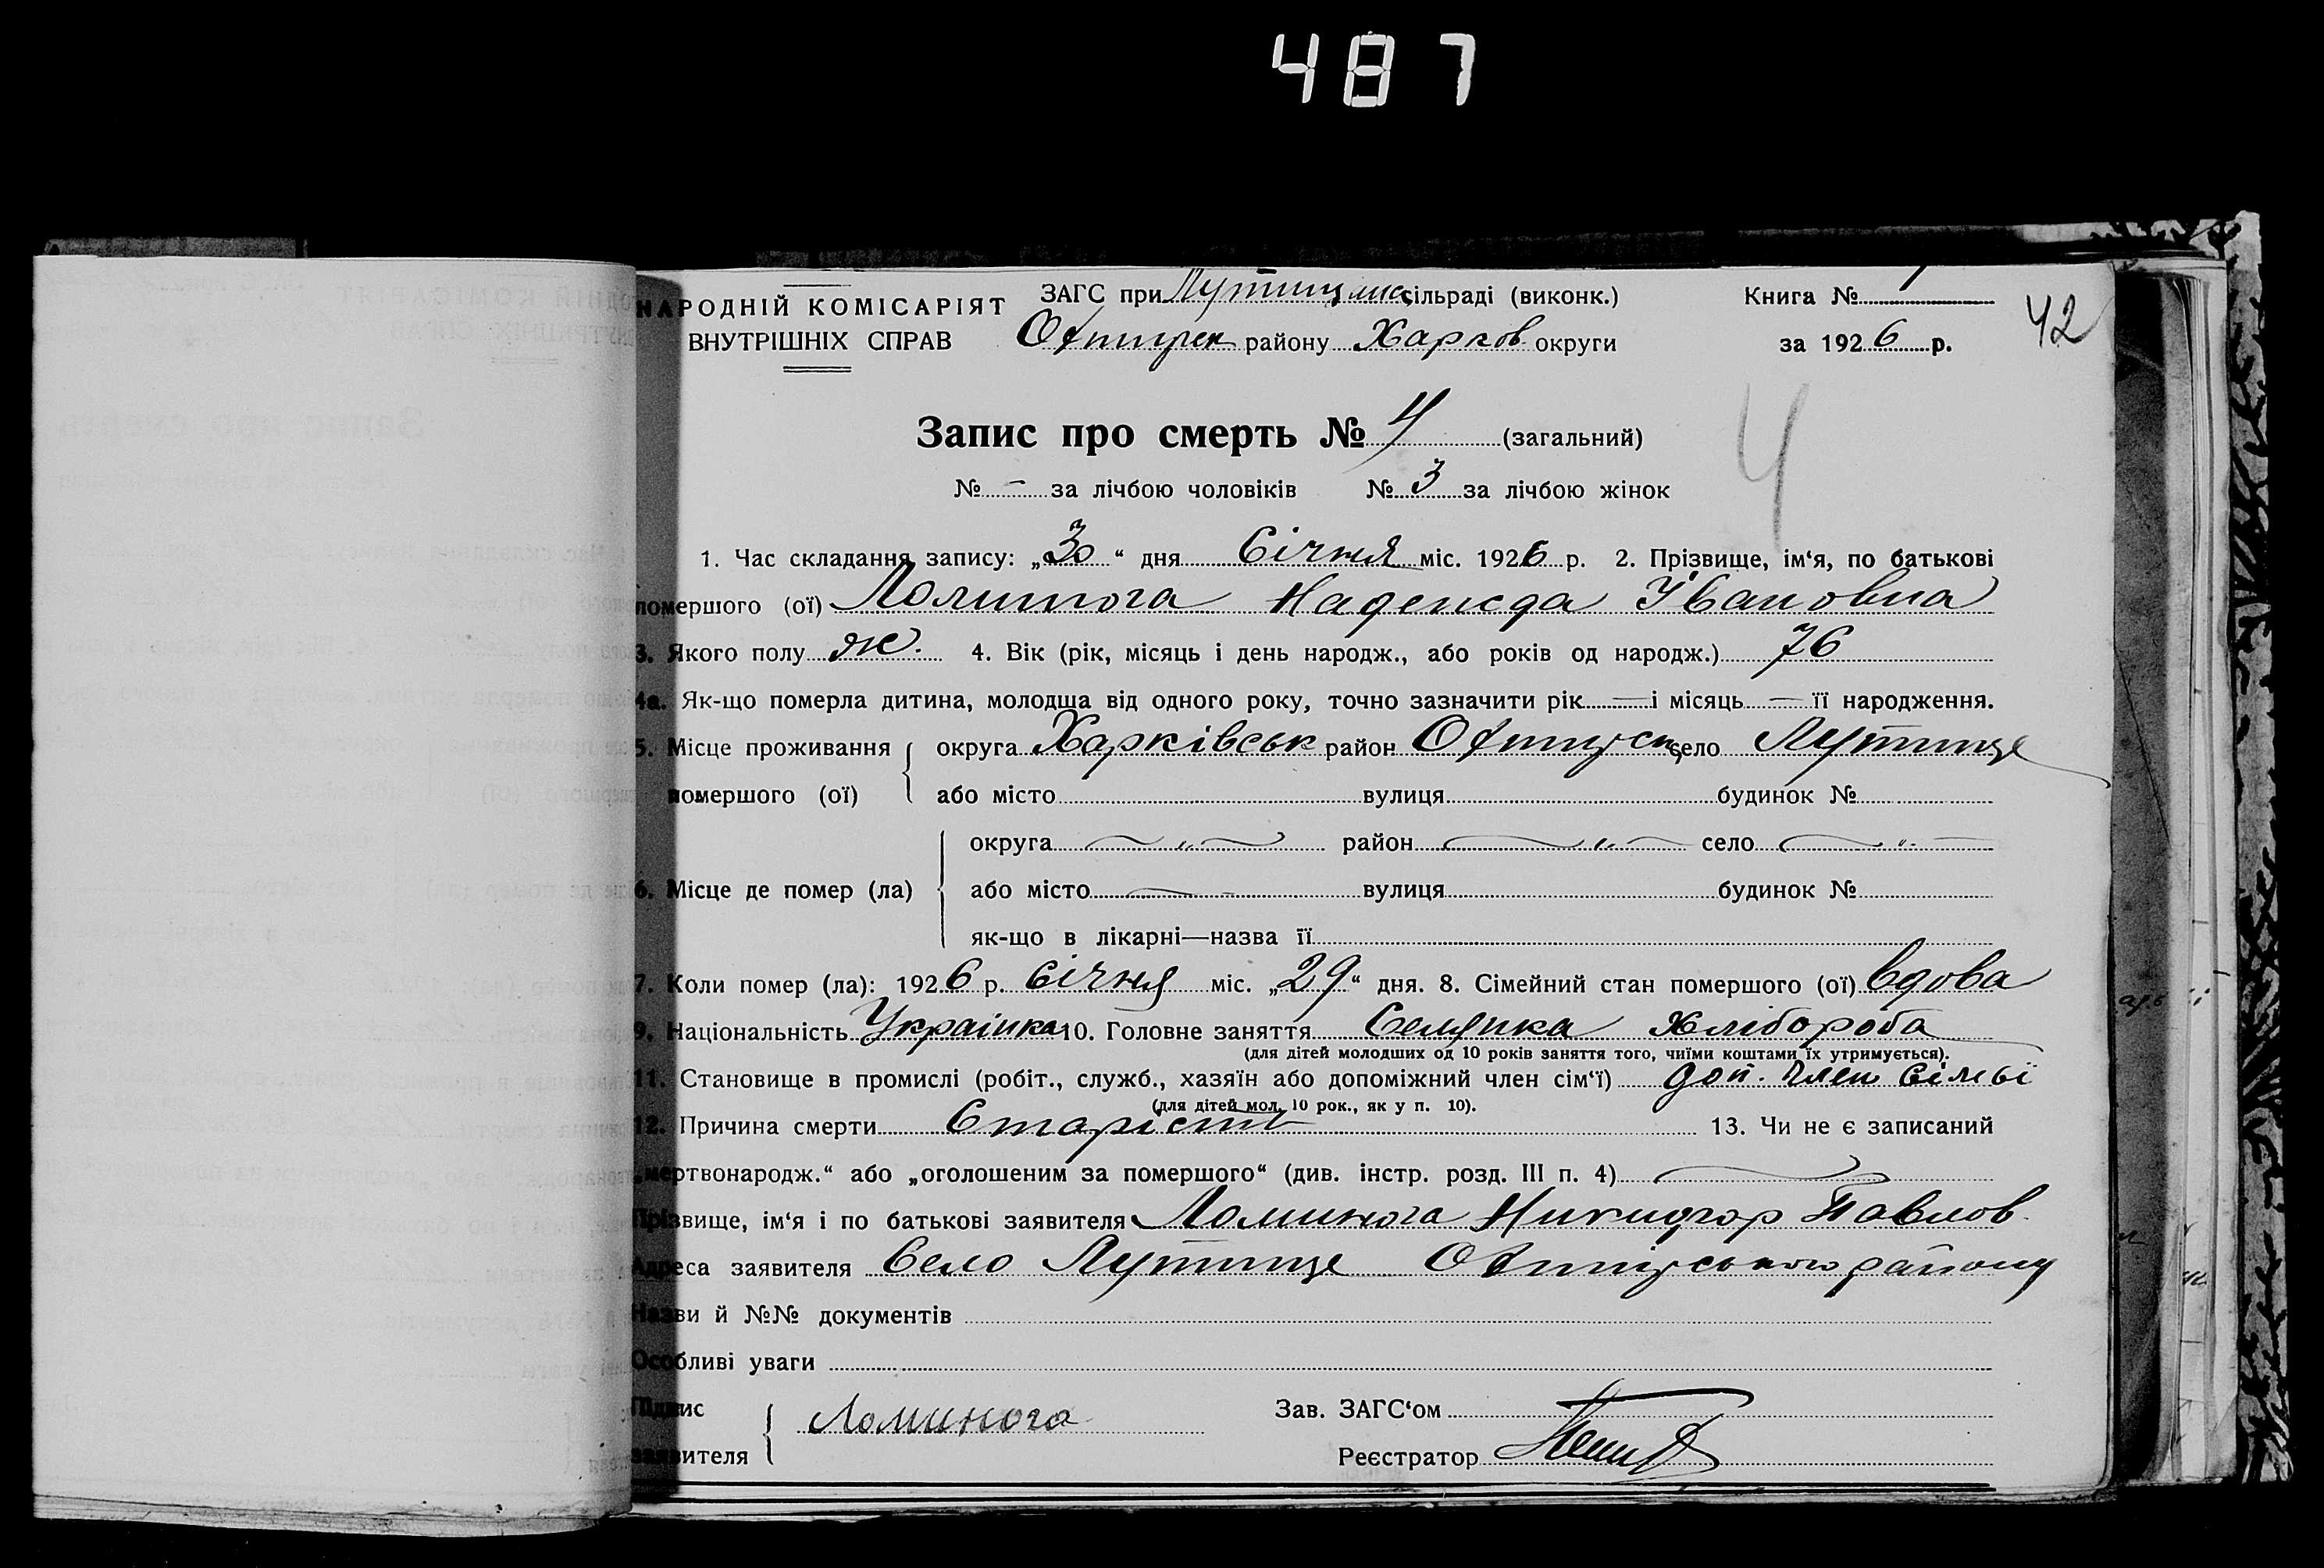 487
НАРОДНІЙ КОМІСАРІЯТ
ВНУТРІШНІХ СПРАВ
ЗАГС при Лутищанс сільраді (виконк.)
Охтирск району Харков округи
Книга № 1
за 1926 р.
42
Запис про смерть № 4 (загальний)
4
№ - за лічбою чоловіків № 3 за лічбою жінок
1. Час складання запису: „30“ дня Січня міс. 1926 р. 2. Прізвище, ім‘я, по батькові
помершого (ої) Ломинога Надежда Івановна
3. Якого полу ж. 4. Вік (рік, місяць і день народж., або років од народж.) 76
4а. Як-що померла дитина, молодша від одного року, точно зазначити рік — і місяць — її народження.
5. Місце проживання округа Харківськ район Охтирск село Лутище
помершого (ої) або місто вулиця будинок №
округа „ район „ село „
6. Місце де помер (ла) або місто вулиця будинок №
як-що в лікарні—назва її
7. Коли помер (ла): 1926 р. Січня міс. „29“ дня. 8. Сімейний стан помершого (ої) вдова
9. Національність Українка 10. Головне заняття Селянка Хлібороба
(для дітей молодших од 10 років заняття того, чиїми коштами їх утримується).
11. Становище в промислі (робіт., служб., хазяїн або допоміжний член сім‘ї) доп. член сімьї
(для дітей мол. 10 рок., як у п. 10).
12. Причина смерти Старість 13. Чи не є записаний
„мертвонародж.“ або „оголошеним за помершого“ (див. інстр. розд. III п. 4)
Прізвище, ім‘я і по батькові заявителя Ломинога Никифор Павлов
Адреса заявителя Село Лутище Охтирського району
Назви й №№ документів
Особливі уваги
Підпис
заявителя Ломинога
Зав. ЗАГС‘ом
Реєстратор